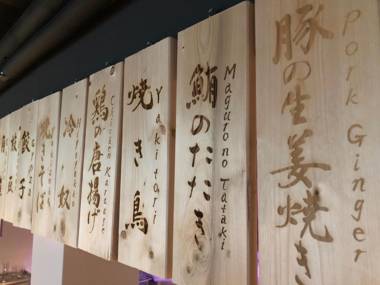 豚の生姜焼き
Pork Ginger
鮪のたたき
Magurono Tataki
焼き鳥
Yakitori
鶏の唐揚げ
Chicken Karaage
冷奴
焼きそば
餃子